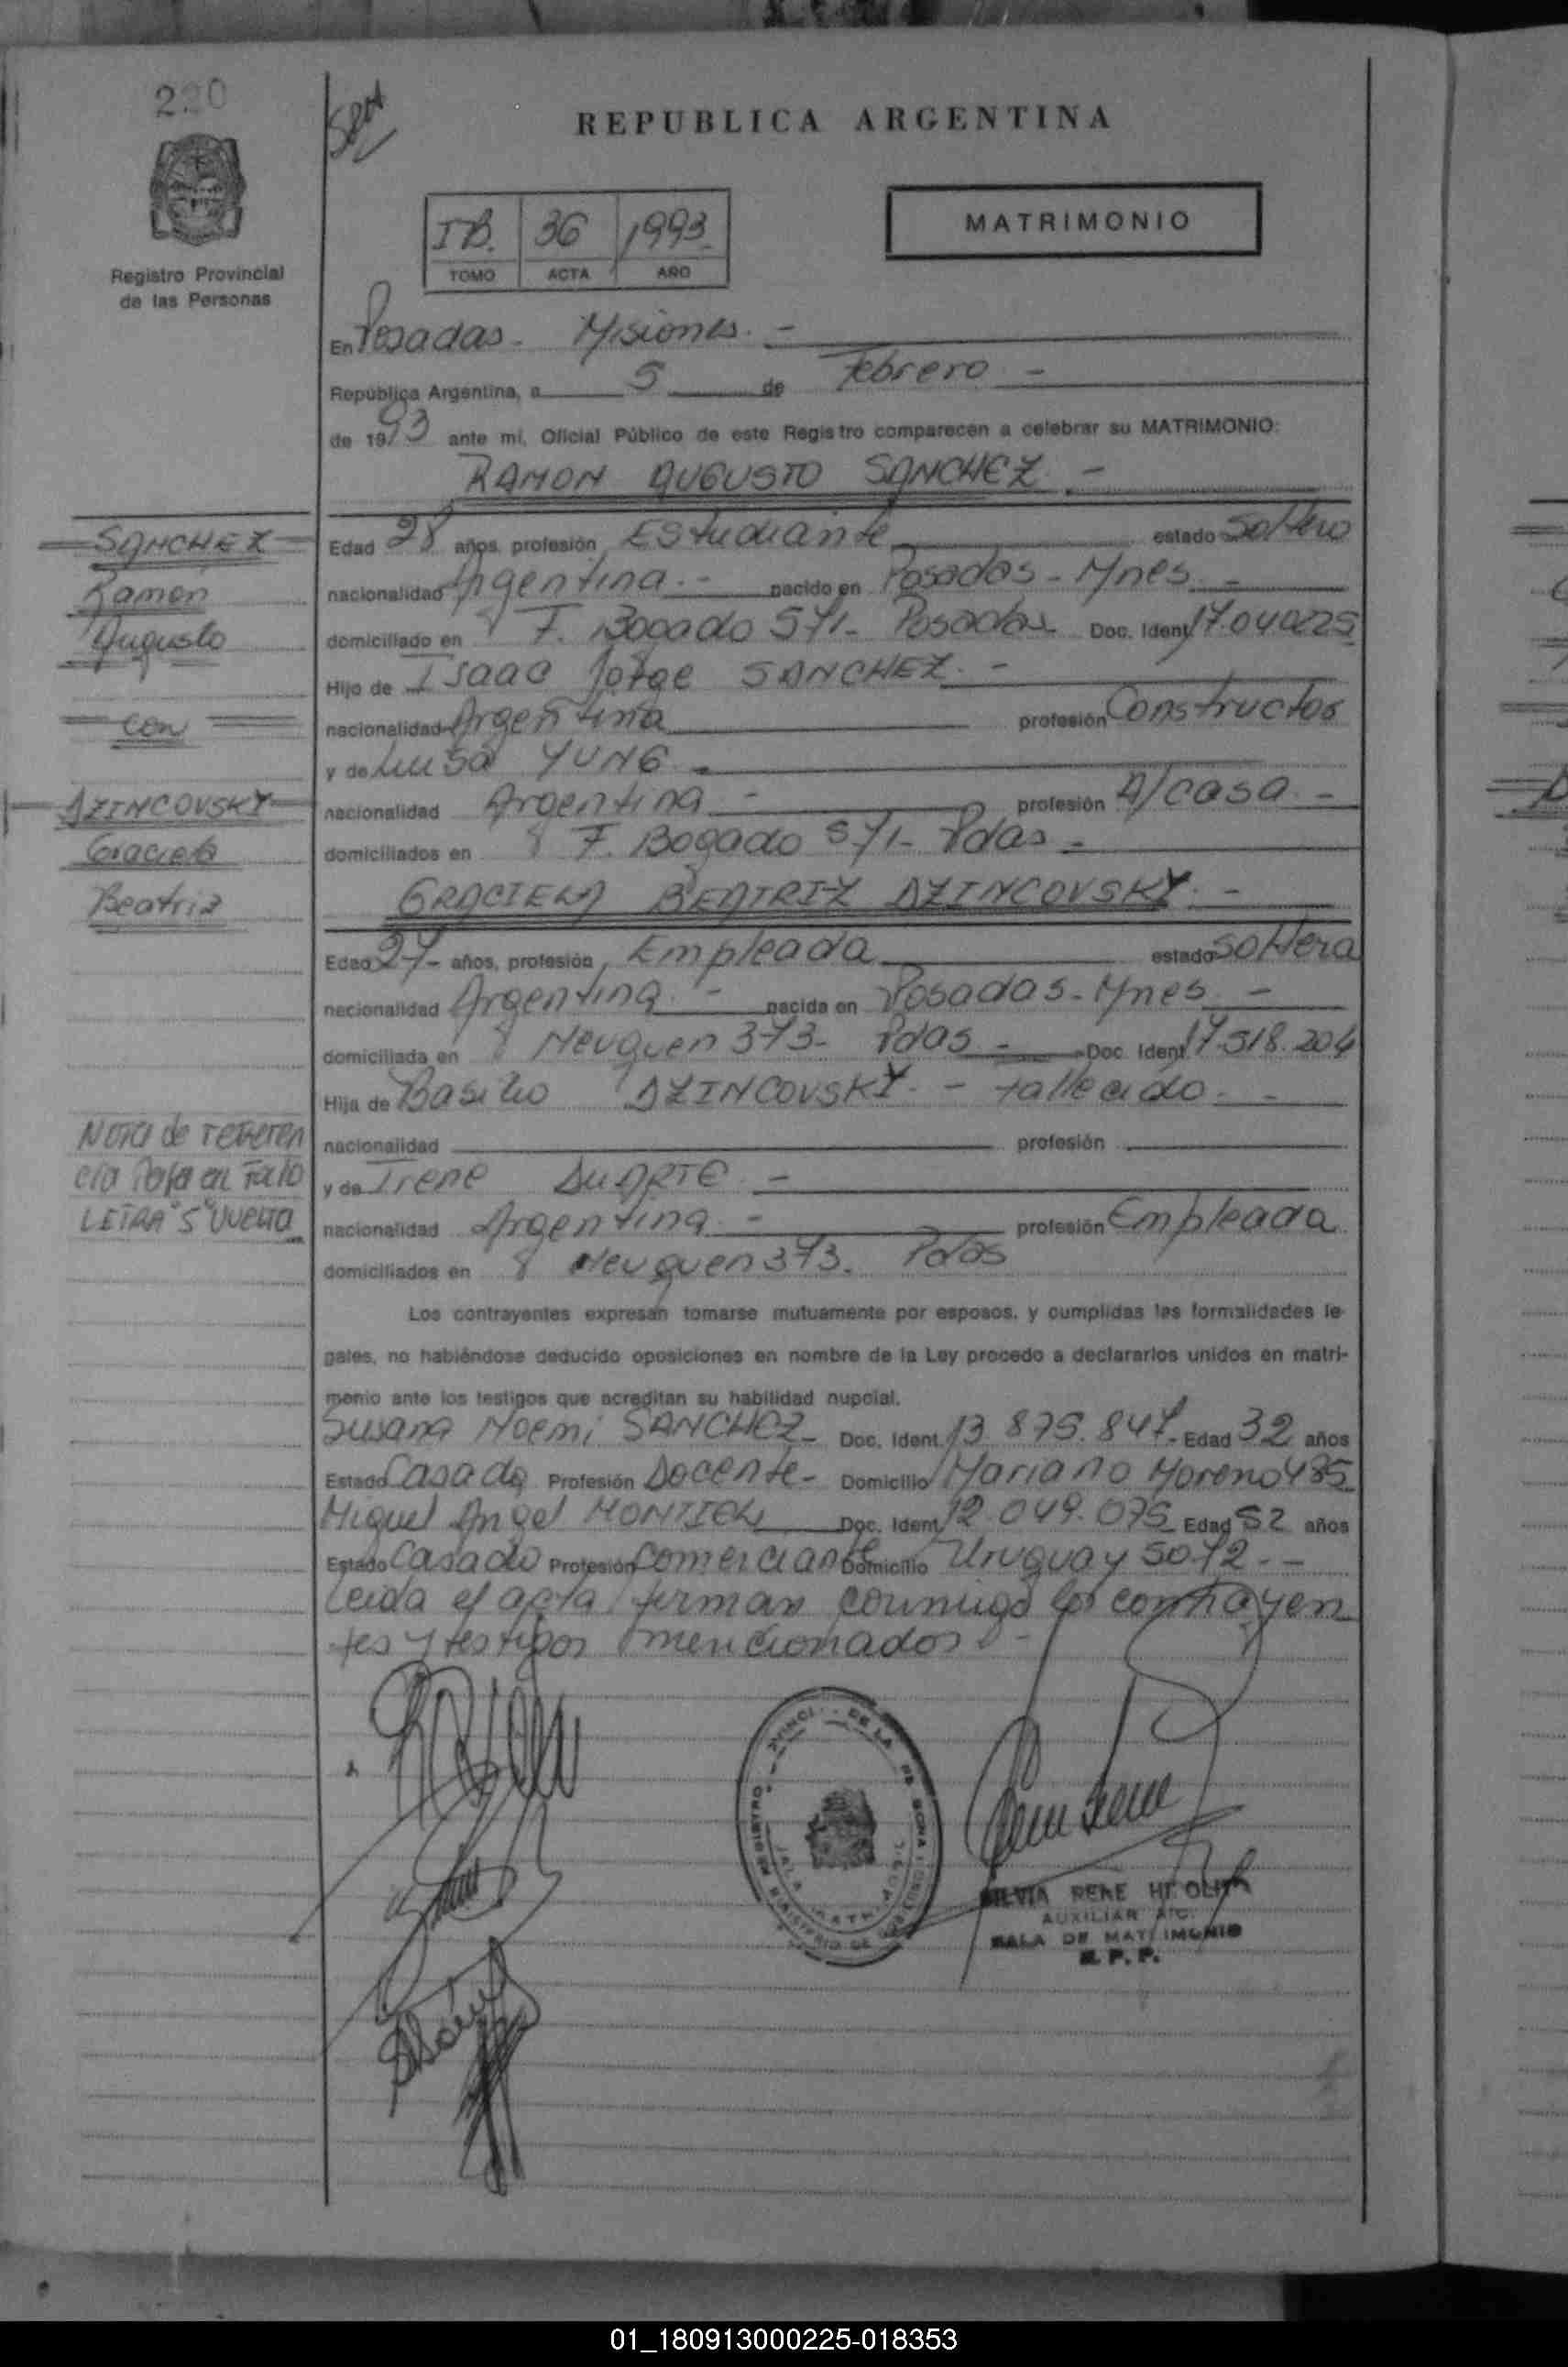 220
REPUBLICA ARGENTINA
Registro Provincial
de las Personas
IB. 36 1993
TOMO ACTA AÑO
MATRIMONIO
En Posadas - Misiones. -
República Argentina, a 5 de Febrero -
de 1993 ante mí, Oficial Público de este Registro comparecen a celebrar su MATRIMONIO:
RAMON AUGUSTO SANCHEZ. -
SANCHEZ
Ramón
Augusto
con
DZINCOVSKY
Graciela
Beatriz
Edad 28 años, profesión Estudiante estado soltero
nacionalidad Argentina. - nacido en Posadas - Mnes. -
domiciliado en F. Bogado 571- Posadas Doc. Ident. 17.040225
Hijo de Isaac Jorge SANCHEZ. -
nacionalidad Argentina profesión Constructor
y de Luisa YUNG -
nacionalidad Argentina - profesión A/casa. -
domiciliados en F. Bogado 571- Pdas -
GRACIELA BEATRIZ DZINCOVSKY. -
Edad 27- años, profesión Empleada estado soltera
nacionalidad Argentina. - nacida en Posadas - Mnes -
domiciliada en Neuquen 373- Pdas - Doc. Ident. 17.518.204
Hija de Basilio DZINCOVSKY. - fallecido. -
nacionalidad profesión
y de Irene DUARTE. -
nacionalidad Argentina. - profesión Empleada
domiciliados en Neuquen 373. Pdas
Nota de referen
cia Pasa en Folio
LETRA "S" vuelta
Los contrayentes expresan tomarse mutuamente por esposos, y cumplidas las formalidades le-
gales, no habiéndose deducido oposiciones en nombre de la Ley procedo a declararlos unidos en matri-
monio ante los testigos que acreditan su habilidad nupcial.
Susana Noemi SANCHEZ- Doc. Ident. 13.875.847- Edad 32 años
Estado Casada Profesión Docente- Domicilio Mariano Moreno 485
Miguel Angel MONTIEL Doc. Ident. 12.049.075 Edad 52 años
Estado Casado Profesión Comerciante Domicilio Uruguay 5072. -
Leida el acta firman conmigo los contrayen
tes y testigos mencionados -
SILVIA RENE
AUXILIAR
SALA DE MATRIMONIO
R. P. P.
01_180913000225-018353